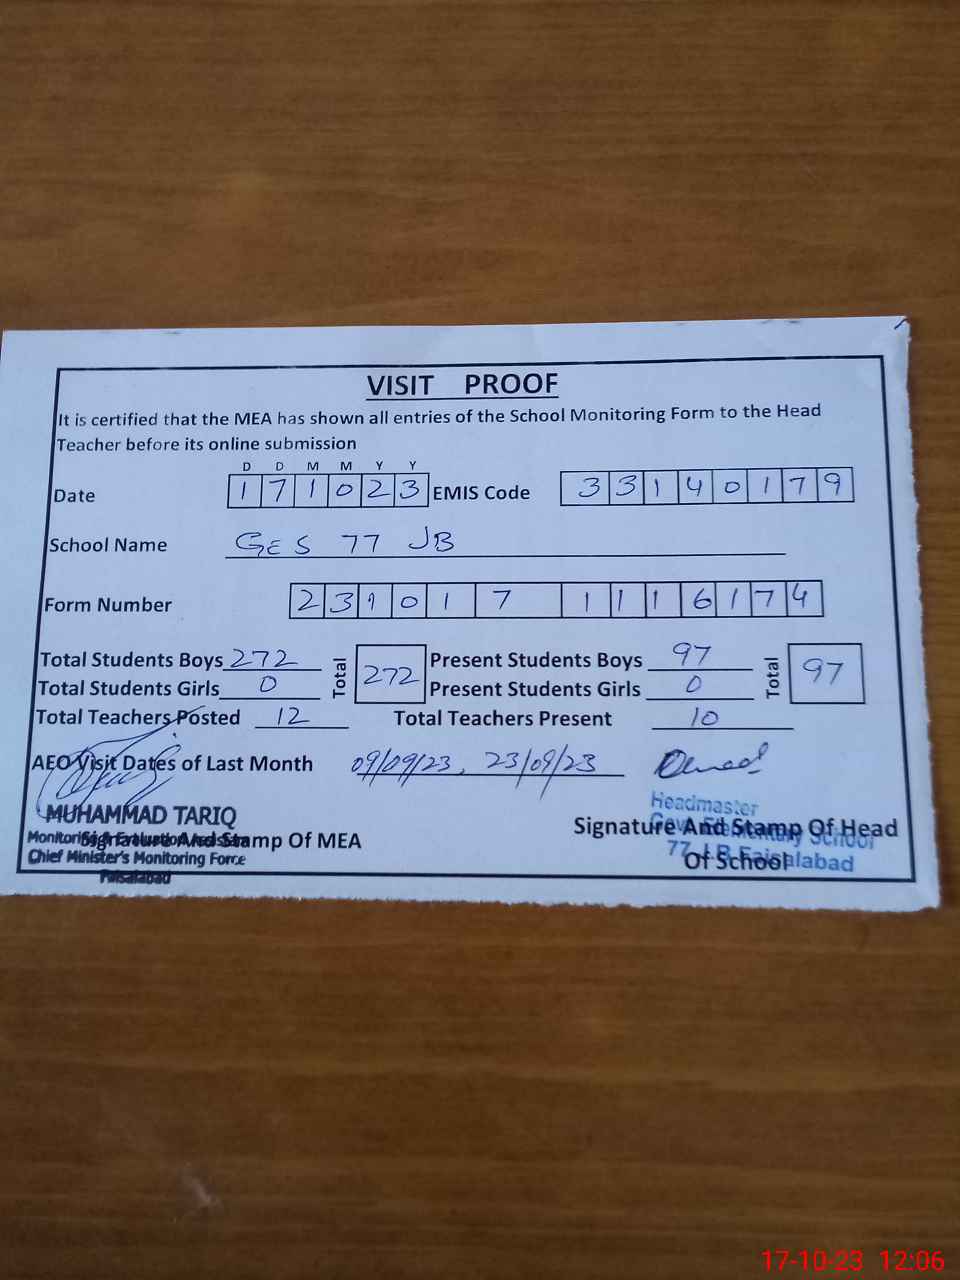 VISIT PROOF
It is certified that the MEA has shown all entries of the School Monitoring Form to the Head
Teacher before its online submission
D D M M Y Y
Date 1 7 1 0 2 3 EMIS Code 3 3 1 4 0 1 7 9
School Name GES 77 JB
Form Number 2 3 1 0 1 7 1 1 1 6 1 7 4
Total Students Boys 272 Total 272 Present Students Boys 97 Total 97
Total Students Girls 0 Present Students Girls 0
Total Teachers Posted 12 Total Teachers Present 10
AEO Visit Dates of Last Month 09/09/23, 23/09/23
MUHAMMAD TARIQ
Monitoring & Evaluation Assistant
Signature And Stamp Of MEA
Chief Minister's Monitoring Force
Faisalabad
Headmaster
Govt. Elementary School
77 J B Faisalabad
Signature And Stamp Of Head
Of School
17-10-23 12:06